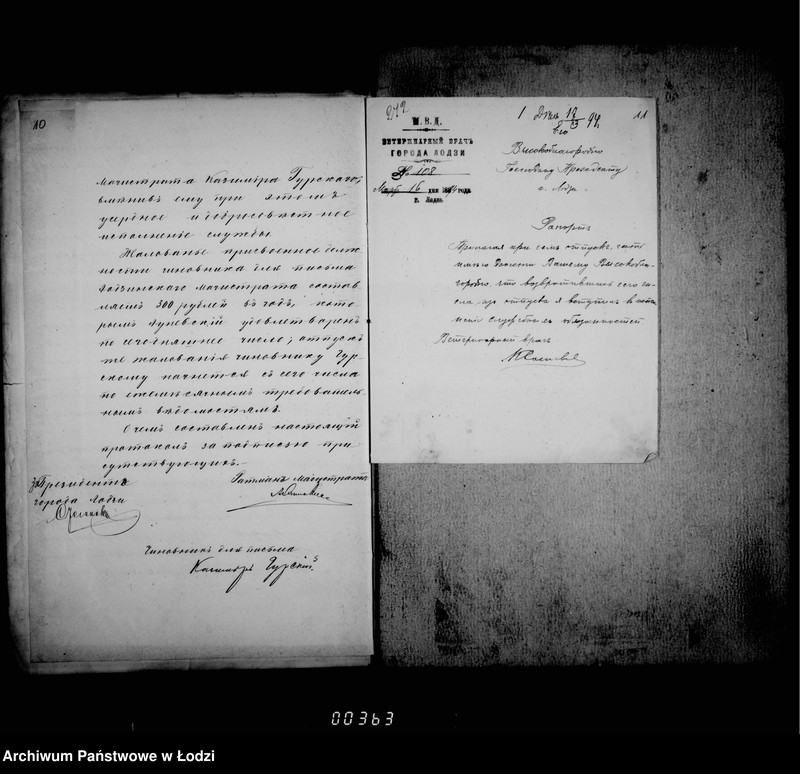 10
магистрата Казимира Гурскаго,
вмѣнивъ ему при этомъ
усердное и добросовѣстное
исполненіе службы.
Жалованье присвоенное долж
ности чиновника для письма
Лодзинскаго магистрата состав
ляетъ 300 рублей въ годъ, кото
рымъ удовлетворенъ
по сегодняшнее число; отпускъ
же жалованія чиновнику Гур-
скому начнется съ сего числа
по ежемѣсячнымъ требователь
нымъ вѣдомостямъ.
О чемъ составленъ настоящій
протоколъ за подписью при
сутствующихъ.
Президентъ
города Лодзи
Ратманъ магистрата
Чиновникъ для письма
Казимиръ Гурскій
11
М. В. Д.
ВЕТЕРИНАРНЫЙ ВРАЧЪ
ГОРОДА ЛОДЗИ
№ 108
16 дня 1894 года
г. Лодзь.
Высокоблагородію
Господину Президенту
г. Лодзи
Рапортъ
Прилагая при семъ отпускъ,
имѣю донести Вашему Высокобла-
городію, что возвратившись сего чи-
сла изъ отпуска я вступилъ въ
служебныхъ обязанностей
Ветеринарный врачъ
00363
Archiwum Państwowe w Łodzi